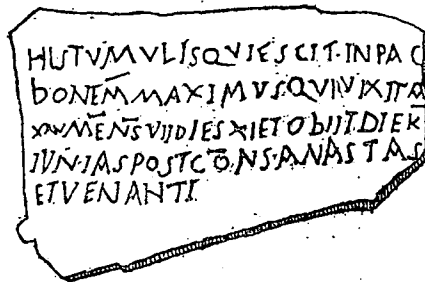 HUTVMVLISQVIESCIT·INPAC
bONEM̄MAXIMVS·QVIVIXITA
XAVMĒNS̄VIIDIESXIETObIITDIEK̄
IVN·IASPOSTCŌ·NS·ANASTAS
ETVENANTI·